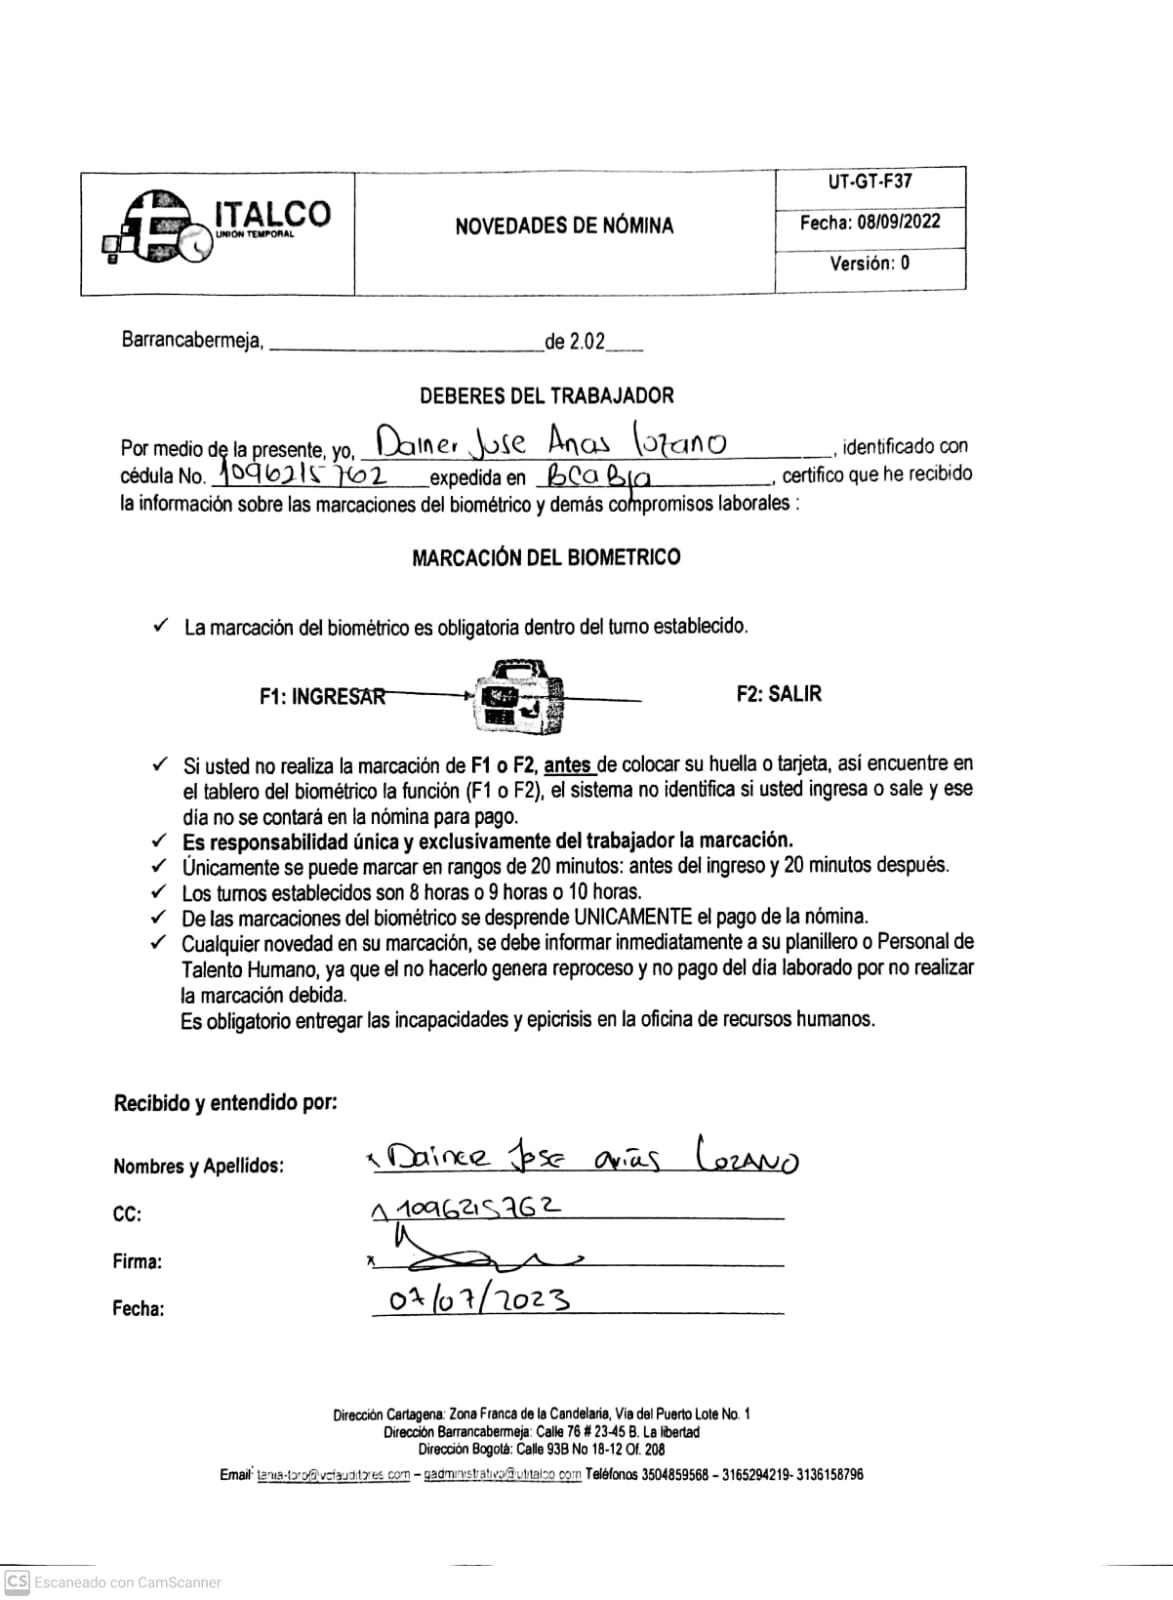 ITALCO
UNION TEMPORAL
NOVEDADES DE NÓMINA
UT-GT-F37
Fecha: 08/09/2022
Versión: 0
Barrancabermeja, ______________________de 2.02___
DEBERES DEL TRABAJADOR
Por medio de la presente, yo, Dainer Jose Arias Lozano, identificado con
cédula No. 1096215762 expedida en BCABJA, certifico que he recibido
la información sobre las marcaciones del biométrico y demás compromisos laborales :
MARCACIÓN DEL BIOMETRICO
✓ La marcación del biométrico es obligatoria dentro del turno establecido.
F1: INGRESAR F2: SALIR
✓ Si usted no realiza la marcación de F1 o F2, antes de colocar su huella o tarjeta, así encuentre en
el tablero del biométrico la función (F1 o F2), el sistema no identifica si usted ingresa o sale y ese
día no se contará en la nómina para pago.
✓ Es responsabilidad única y exclusivamente del trabajador la marcación.
✓ Únicamente se puede marcar en rangos de 20 minutos: antes del ingreso y 20 minutos después.
✓ Los turnos establecidos son 8 horas o 9 horas o 10 horas.
✓ De las marcaciones del biométrico se desprende UNICAMENTE el pago de la nómina.
✓ Cualquier novedad en su marcación, se debe informar inmediatamente a su planillero o Personal de
Talento Humano, ya que el no hacerlo genera reproceso y no pago del día laborado por no realizar
la marcación debida.
Es obligatorio entregar las incapacidades y epicrisis en la oficina de recursos humanos.
Recibido y entendido por:
Nombres y Apellidos: x Dainer Jose arias LOZANO
CC: 1096215762
Firma: x
Fecha: 07/07/2023
Dirección Cartagena: Zona Franca de la Candelaria, Vía del Puerto Lote No. 1
Dirección Barrancabermeja: Calle 76 # 23-45 B. La libertad
Dirección Bogotá: Calle 93B No 18-12 Of. 208
Email: tania-toro@vcfauditores.com – gadministrativa@utitalco.com Teléfonos 3504859568 – 3165294219- 3136158796
CS Escaneado con CamScanner